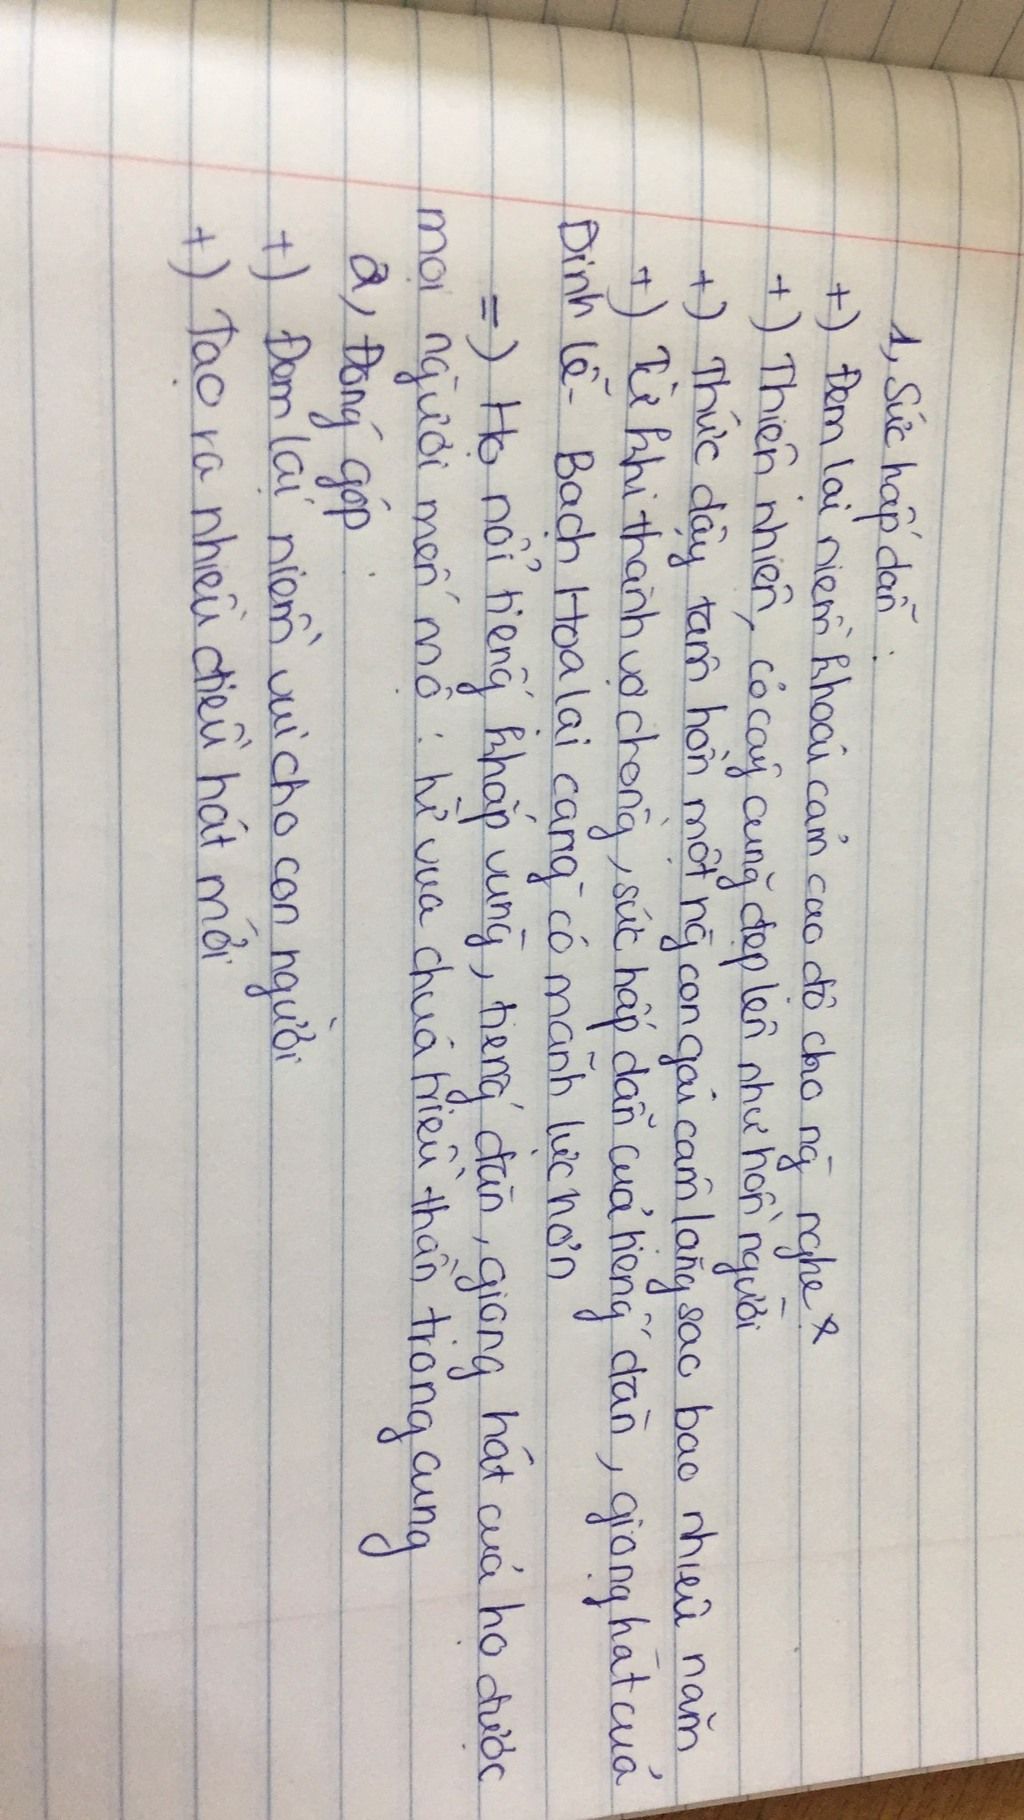 1, Sức hấp dẫn :
+) Đem lại niềm khoái cảm cao độ cho ng nghe
+) Thiên nhiên, cỏ cây cũng đẹp lên như hồn người
+) Thức dậy tâm hồn một ng con gái câm lặng sao bao nhiêu năm
+) Từ khi thành vợ chồng, sức hấp dẫn của tiếng đàn, giọng hát của
Đinh Lễ - Bạch Hoa lại càng có mãnh lực hơn
=) Họ nổi tiếng khắp vùng, tiếng đàn, giọng hát của họ được
mọi người mến mộ : từ vua chúa triều thần trong cung
2, Đóng góp :
+) Đem lại niềm vui cho con người
+) Tạo ra nhiều điều hát mới